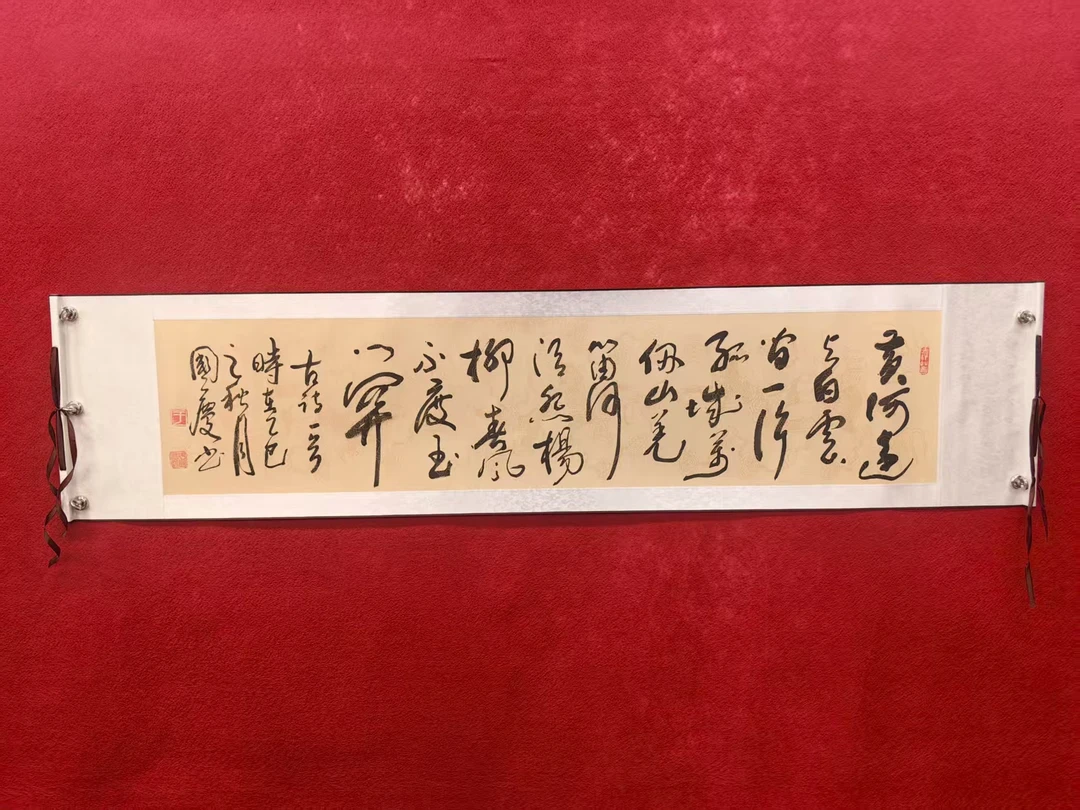 黄河遠
上白雲
间一片
孤城萬
仞山羌
笛何
须怨楊
柳春風
不度玉
门関
古诗一首
時在乙巳
之秋月
國慶书